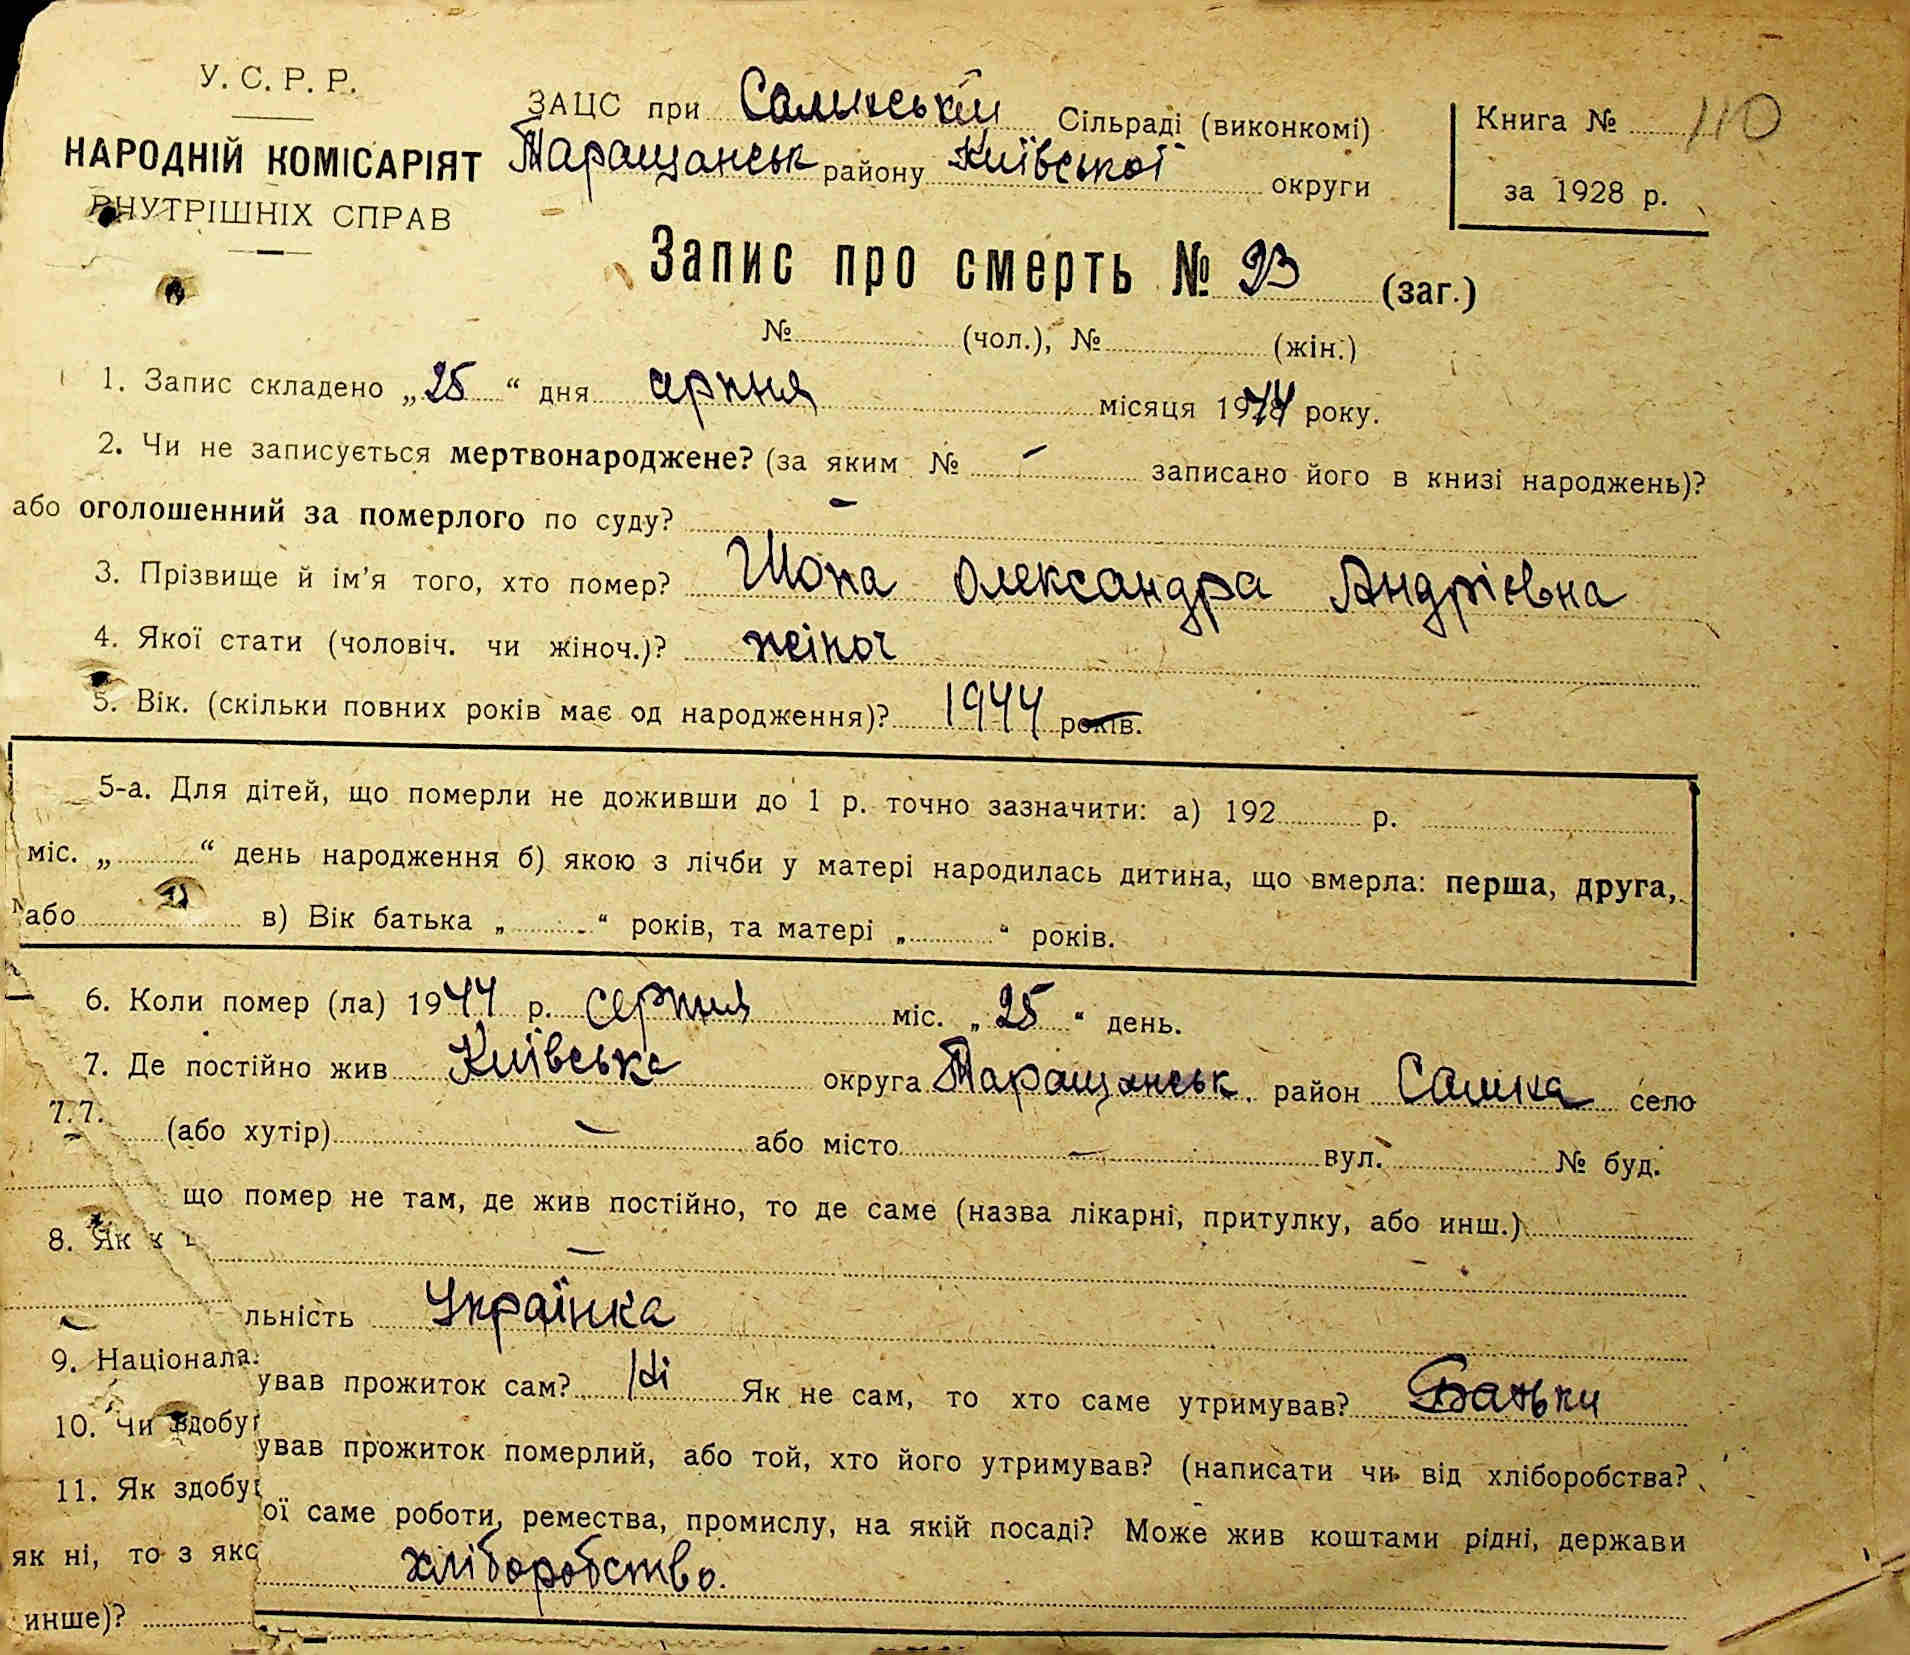 У. С. Р. Р.
НАРОДНІЙ КОМІСАРІЯТ
ВНУТРІШНІХ СПРАВ
ЗАЦС при Салиськiй Сільраді (виконкомі)
Таращанськ району Київської округи
Книга № 110
за 1928 р.
Запис про смерть № 23 (заг.)
№ (чол.), № (жін.)
1. Запис складено „25“ дня серпня місяця 1944 року.
2. Чи не записується мертвонароджене? (за яким № – записано його в книзі народжень)?
або оголошенний за померлого по суду? –
3. Прізвище й ім’я того, хто помер? Шопа Олександра Андрієвна
4. Якої стати (чоловіч. чи жіноч.)? жіноч
5. Вік. (скільки повних років має од народження)? 1944 років.
5-а. Для дітей, що померли не доживши до 1 р. точно зазначити: а) 192 р.
міс. „ “ день народження б) якою з лічби у матері народилась дитина, що вмерла: перша, друга,
або в) Вік батька „ “ років, та матері „ “ років.
6. Коли помер (ла) 1944 р. серпня міс. „25“ день.
7. Де постійно жив Київська округа Таращанськ. район село
7.7. (або хутір) – або місто – вул. № буд.
що помер не там, де жив постійно, то де саме (назва лікарні, притулку, або инш.)
8. Як –
льність Українка
9. Націонала
ував прожиток сам? Ні Як не сам, то хто саме утримував? Батьки
10. Чи здобу
ував прожиток померлий, або той, хто його утримував? (написати чи від хліборобства?
11. Як здобу
ої саме роботи, ремества, промислу, на якій посаді? Може жив коштами рідні, держави
як ні, то з яко
хліборобство.
инше)?